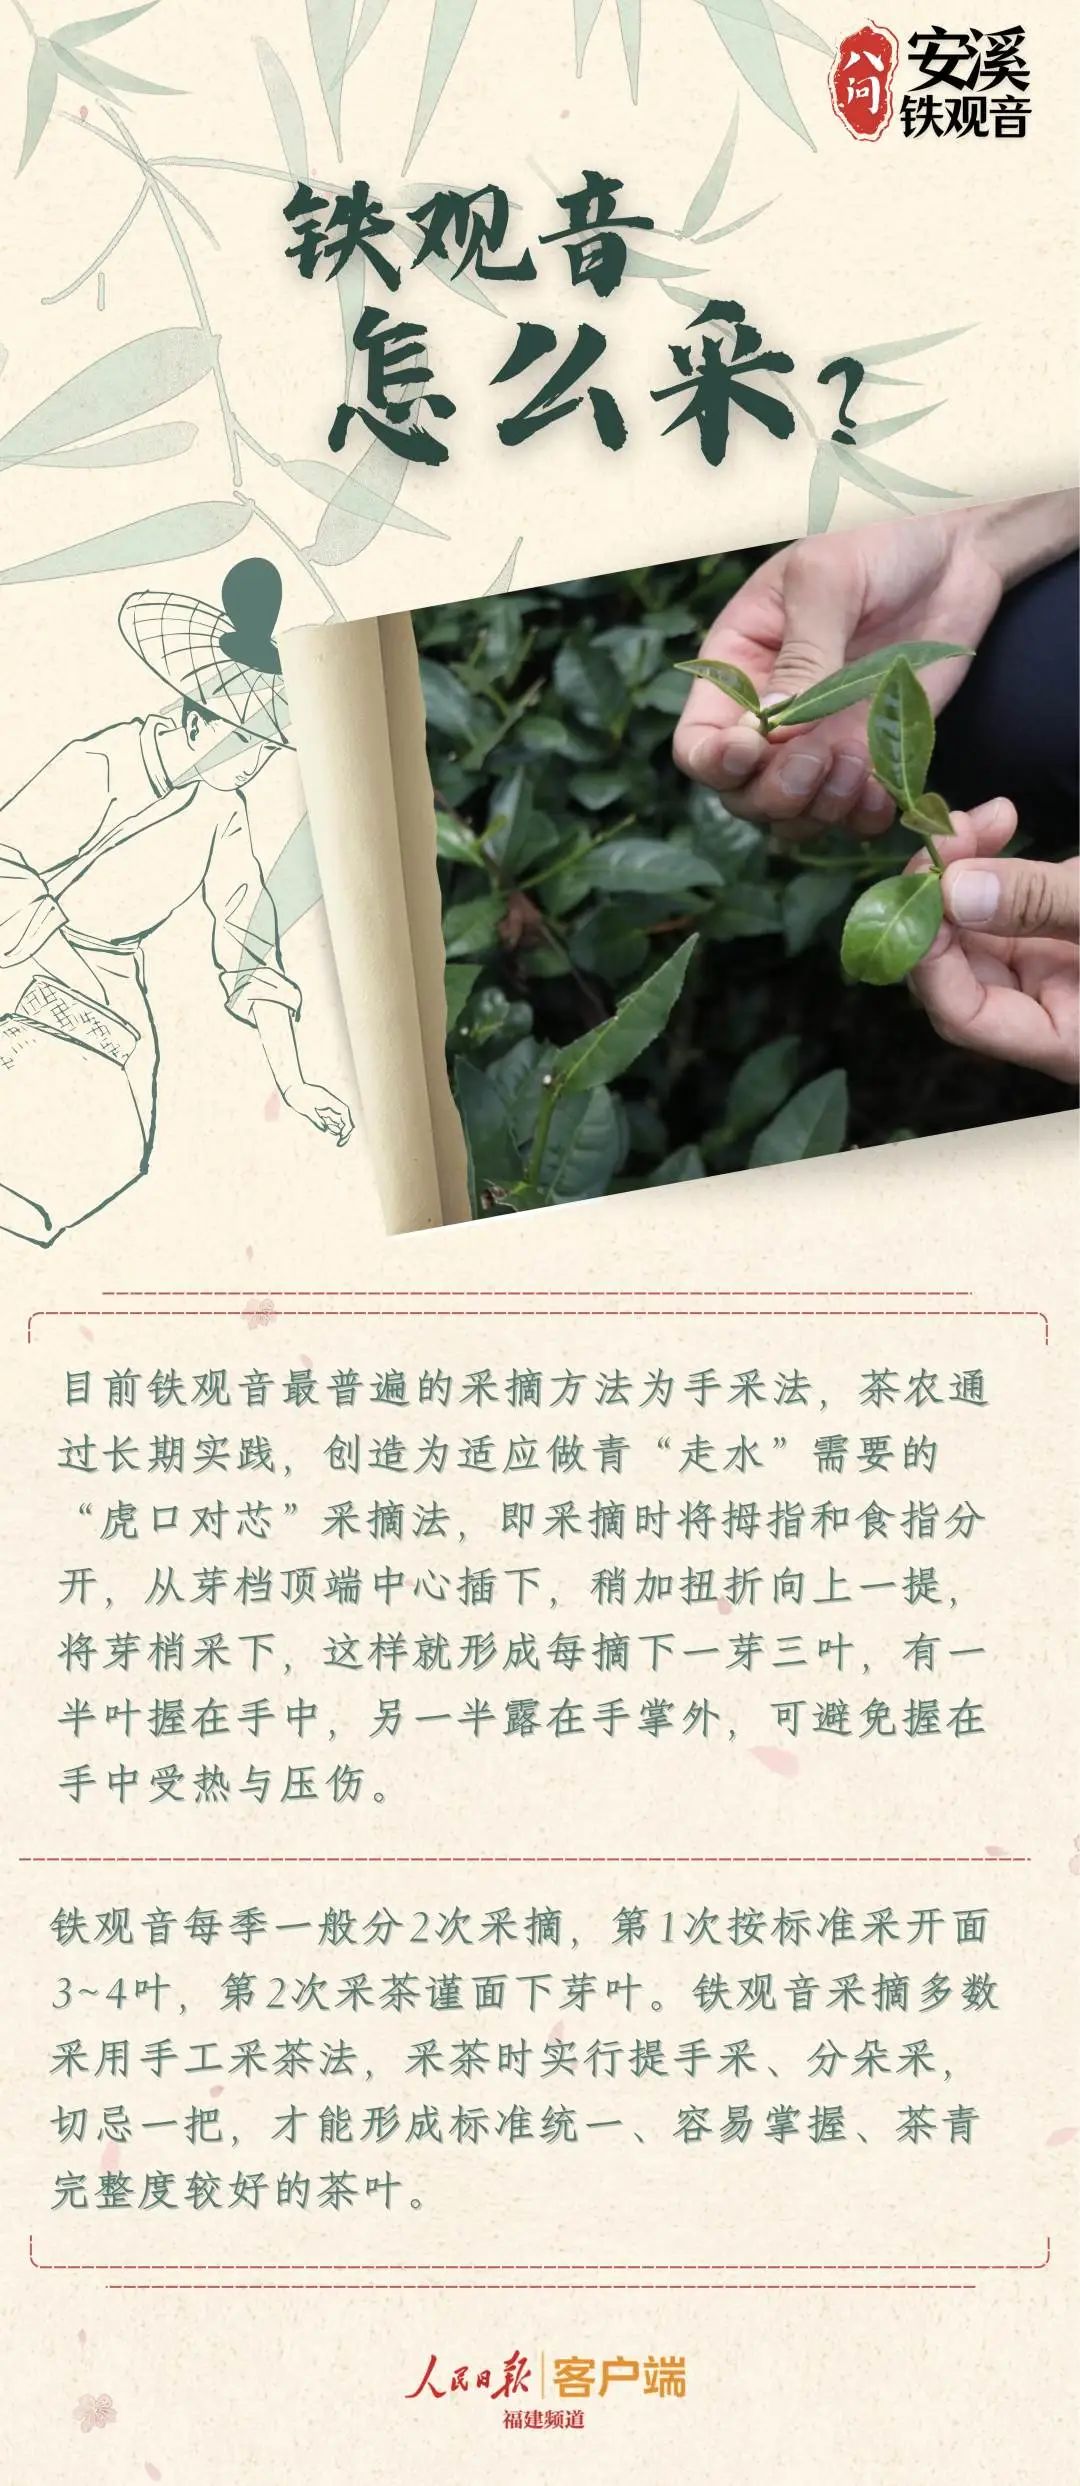 八问
安溪
铁观音
铁观音
怎么采？
目前铁观音最普遍的采摘方法为手采法，茶农通
过长期实践，创造为适应做青“走水”需要的
“虎口对芯”采摘法，即采摘时将拇指和食指分
开，从芽档顶端中心插下，稍加扭折向上一提，
将芽梢采下，这样就形成每摘下一芽三叶，有一
半叶握在手中，另一半露在手掌外，可避免握在
手中受热与压伤。
铁观音每季一般分2次采摘，第1次按标准采开面
3~4叶，第2次采茶谨面下芽叶。铁观音采摘多数
采用手工采茶法，采茶时实行提手采、分朵采，
切忌一把，才能形成标准统一、容易掌握、茶青
完整度较好的茶叶。
人民日报 客户端
福建频道